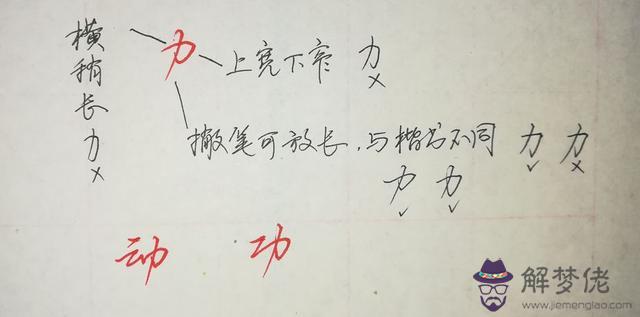 横稍长力×
力
上宽下窄 力×
撇笔可放长，与楷书不同 力✓ 力×
力✓ 力✓
动 功
解梦佬
www.jiemenglao.com